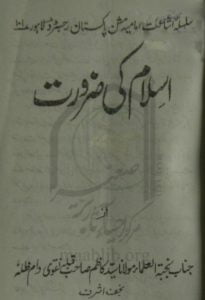 سلسلہ اشاعت امامیہ مشن پاکستان رجسٹرڈ لاہور
اسلام کی ضرورت
از
جناب نخبۃ العلماء مولانا سید کاظم صاحب قبلہ نقوی دام ظلہ
نجف اشرف